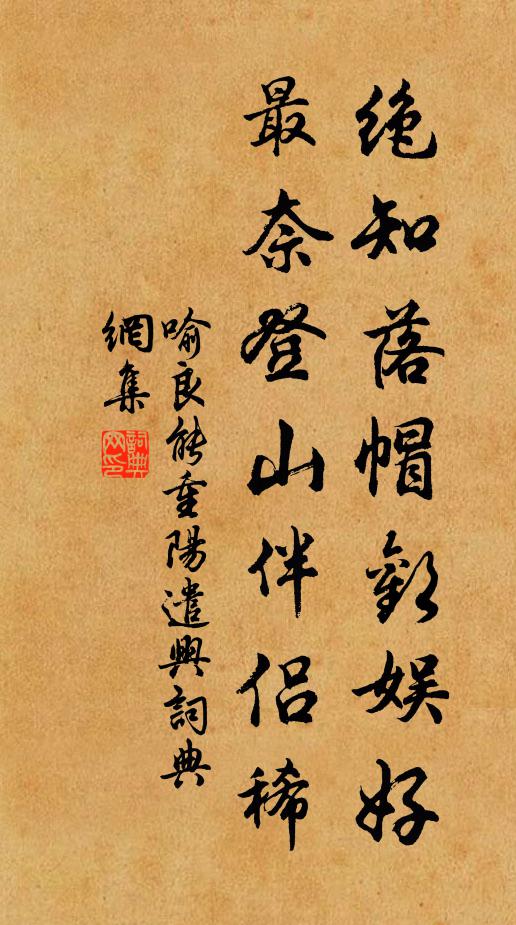 絕知落帽歡娛好
最奈登山伴侶稀
喻良能重陽遣興詞典
網集
詞典網印